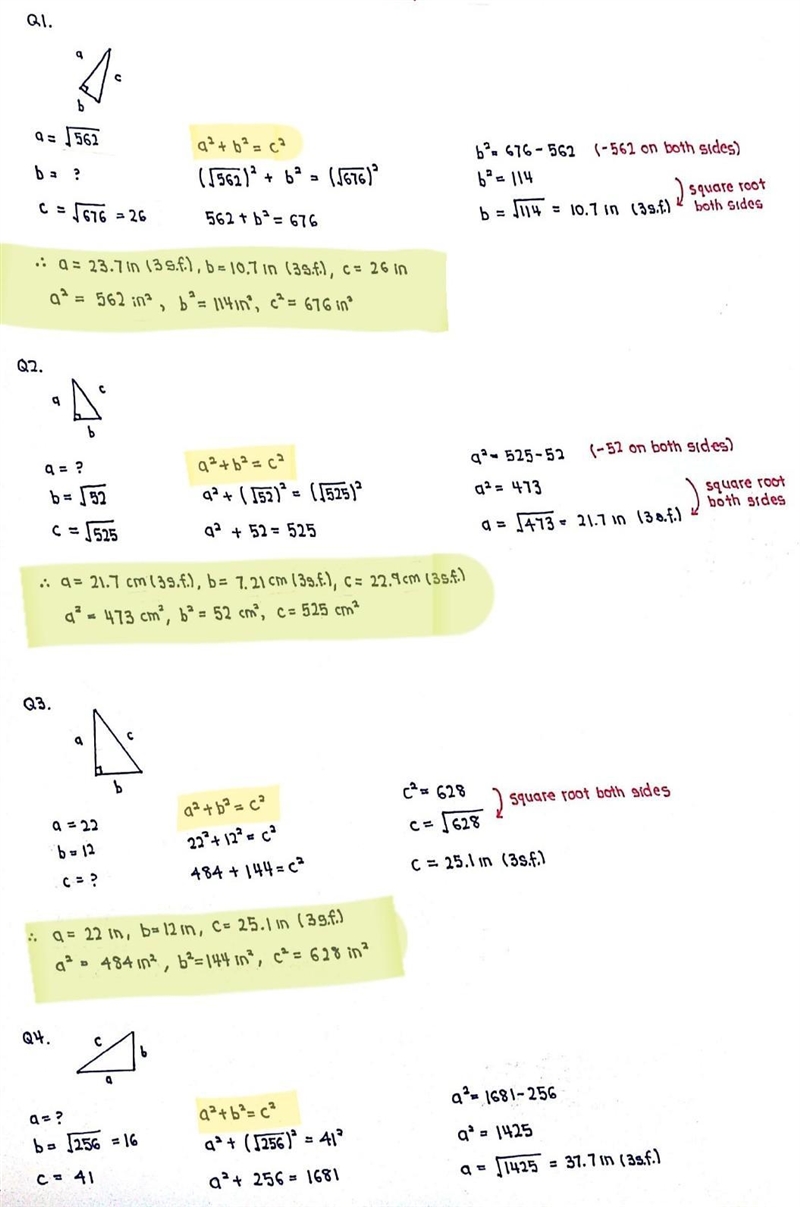 Q1.
a
c
b
a = √562
b = ?
c = √676 = 26
a² + b² = c²
(√562)² + b² = (√676)²
562 + b² = 676
b² = 676 - 562 (-562 on both sides)
b² = 114
b = √114 = 10.7 in (3s.f.)
square root
both sides
∴ a = 23.7 in (3s.f.), b = 10.7 in (3s.f.), c = 26 in
a² = 562 in², b² = 114 in², c² = 676 in²
Q2.
a
c
b
a = ?
b = √52
c = √525
a² + b² = c²
a² + (√52)² = (√525)²
a² + 52 = 525
a² = 525 - 52 (-52 on both sides)
a² = 473
a = √473 = 21.7 in (3s.f.)
square root
both sides
∴ a = 21.7 cm (3s.f.), b = 7.21 cm (3s.f.), c = 22.9 cm (3s.f.)
a² = 473 cm², b² = 52 cm², c = 525 cm²
Q3.
a
c
b
a = 22
b = 12
c = ?
a² + b² = c²
22² + 12² = c²
484 + 144 = c²
c² = 628
c = √628
square root both sides
c = 25.1 in (3s.f.)
∴ a = 22 in, b = 12 in, c = 25.1 in (3s.f.)
a² = 484 in², b² = 144 in², c² = 628 in²
Q4.
c
b
a
a = ?
b = √256 = 16
c = 41
a² + b² = c²
a² + (√256)² = 41²
a² + 256 = 1681
a² = 1681 - 256
a² = 1425
a = √1425 = 37.7 in (3s.f.)